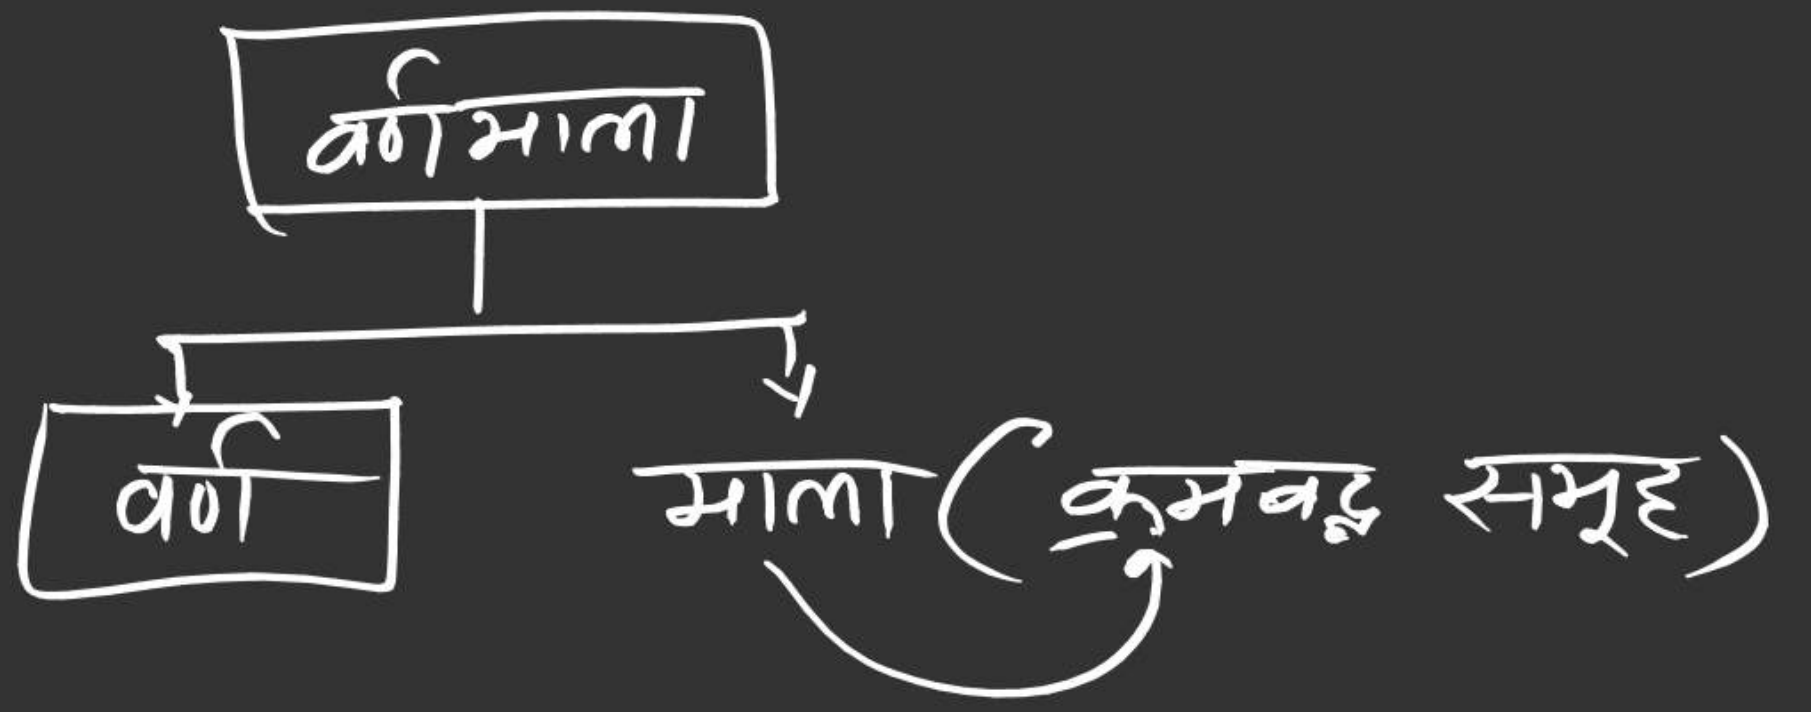 वर्णमाला
वर्ण माला (क्रमबद्ध समूह)